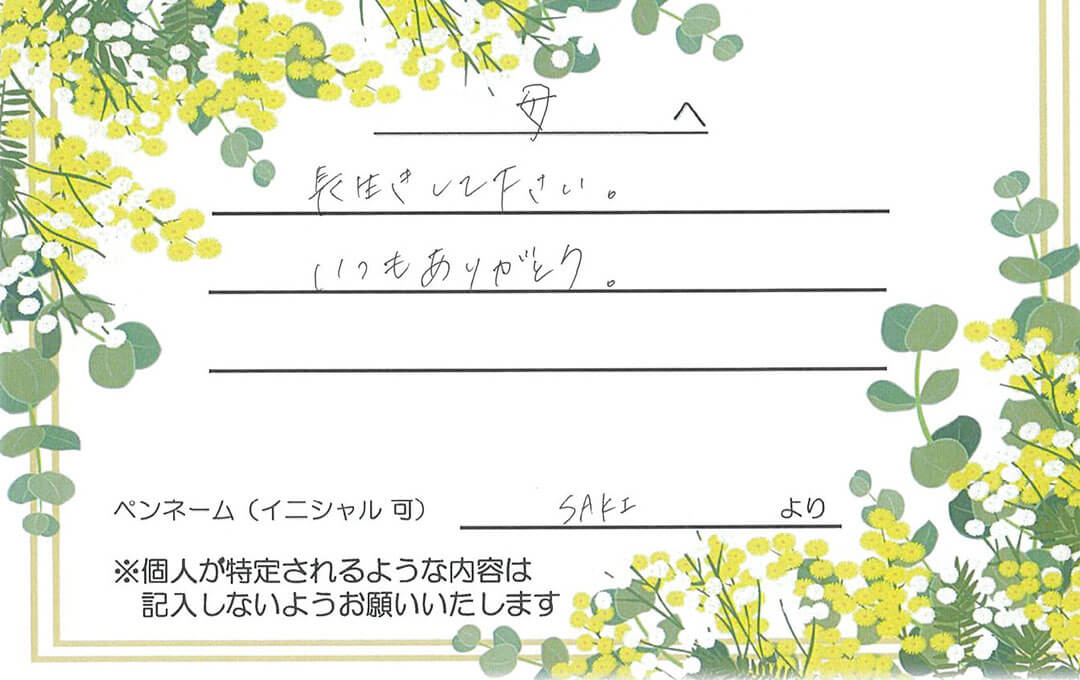 母 へ
長生きして下さい。
いつもありがとう。
ペンネーム（イニシャル 可） SAKI より
※個人が特定されるような内容は
記入しないようお願いいたします